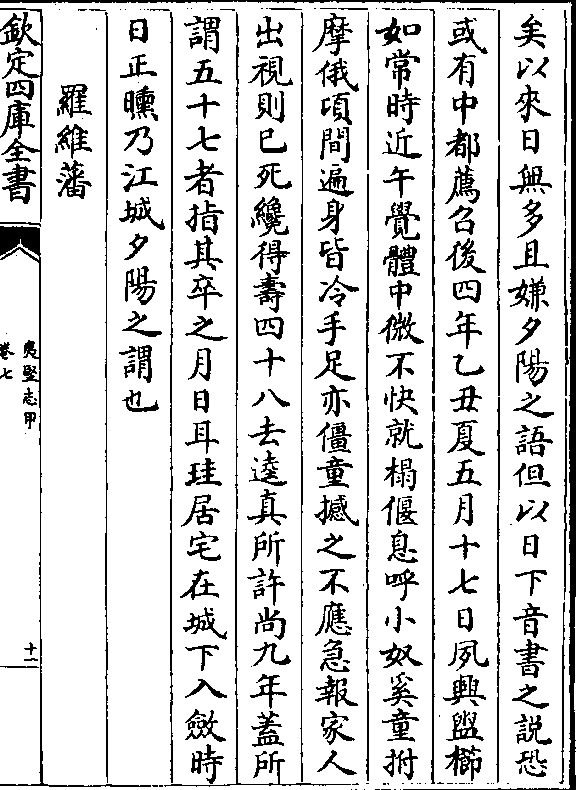 矣以來日無多且嫌夕陽之語但以日下音書之説恐
或有中都薦召後四年乙丑夏五月十七日夙興盥櫛
如常時近午覺體中微不快就榻偃息呼小奴奚童拊
摩俄頃間遍身皆冷手足亦僵童撼之不應急報家人
出視則已死纔得壽四十八去逵真所許尚九年葢所
謂五十七者指其卒之月日耳珪居宅在城下入斂時
日正曛乃江城夕陽之謂也
羅維藩
欽定四庫全書
夷堅志甲
卷七
十二